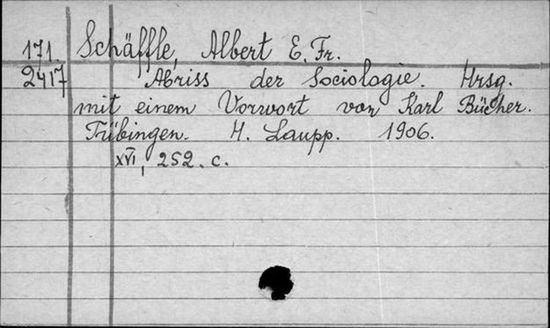 171 Schäffle, Albert E. Fr.
2417 Abriss der Sociologie. Hrsg.
mit einem Vorwort von Karl Bücher.
Tübingen. H. Laupp. 1906.
XVI, 252. c.